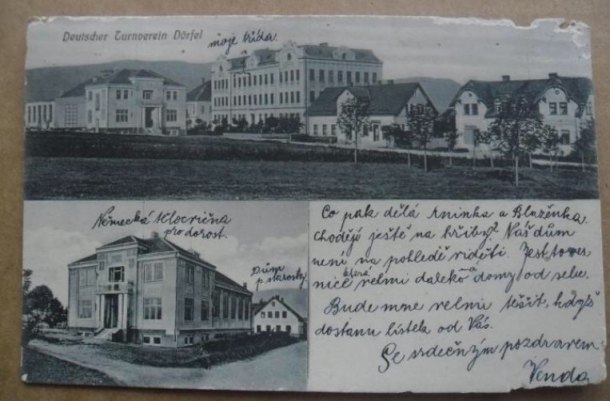 Deutscher Turnverein Dörfel
moje třída.
Německá tělocvična
pro dorost.
Dům
p. starosty
Co pak dělá Aninka a Blaženka.
Chodějí ještě na hřiby? Náš dům
není na pohledě viděti. Jest to ves-
nice velmi daleko domy od sebe.
Bude mne velmi těšit, když
dostanu lístek od Vás.
Se srdečným pozdravem
Venda